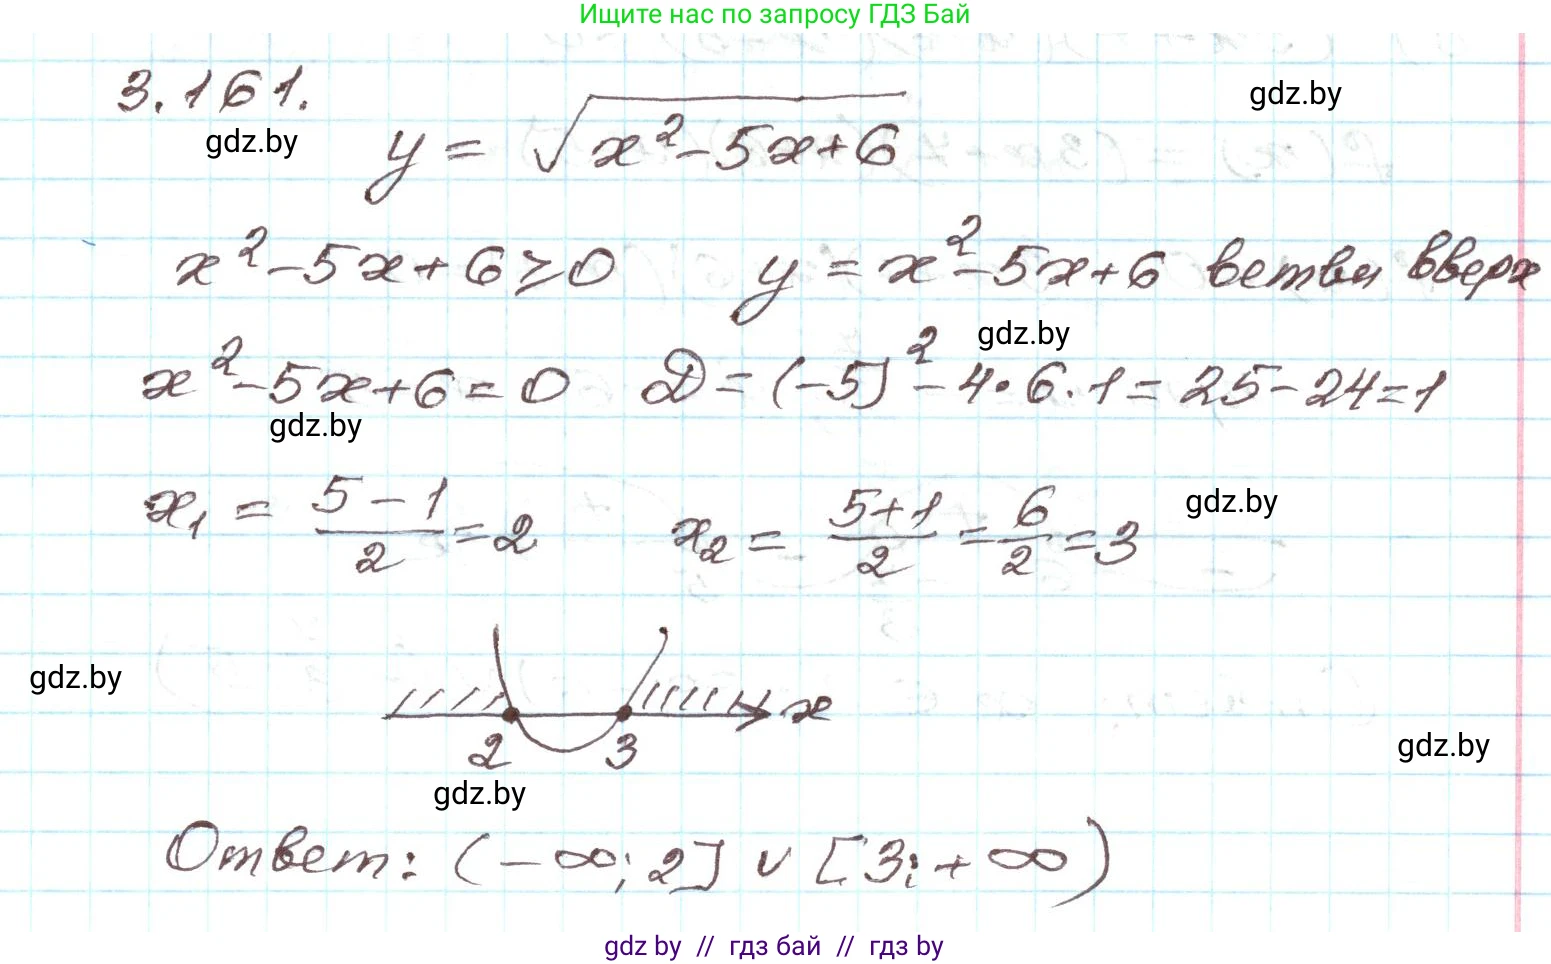 Ищите нас по запросу ГДЗ Бай
3.161.
gdz.by
gdz.by
y = √(x²-5x+6)
x²-5x+6≥0 y = x²-5x+6 ветви вверх
gdz.by
x²-5x+6=0 D = (-5)²-4·6·1=25-24=1
gdz.by
x₁ = (5-1)/2 = 2 x₂ = (5+1)/2 = 6/2 = 3
gdz.by
gdz.by
x
2 3
gdz.by
gdz.by
Ответ: (-∞; 2] ∪ [3; +∞)
gdz by // гдз бай // гдз by